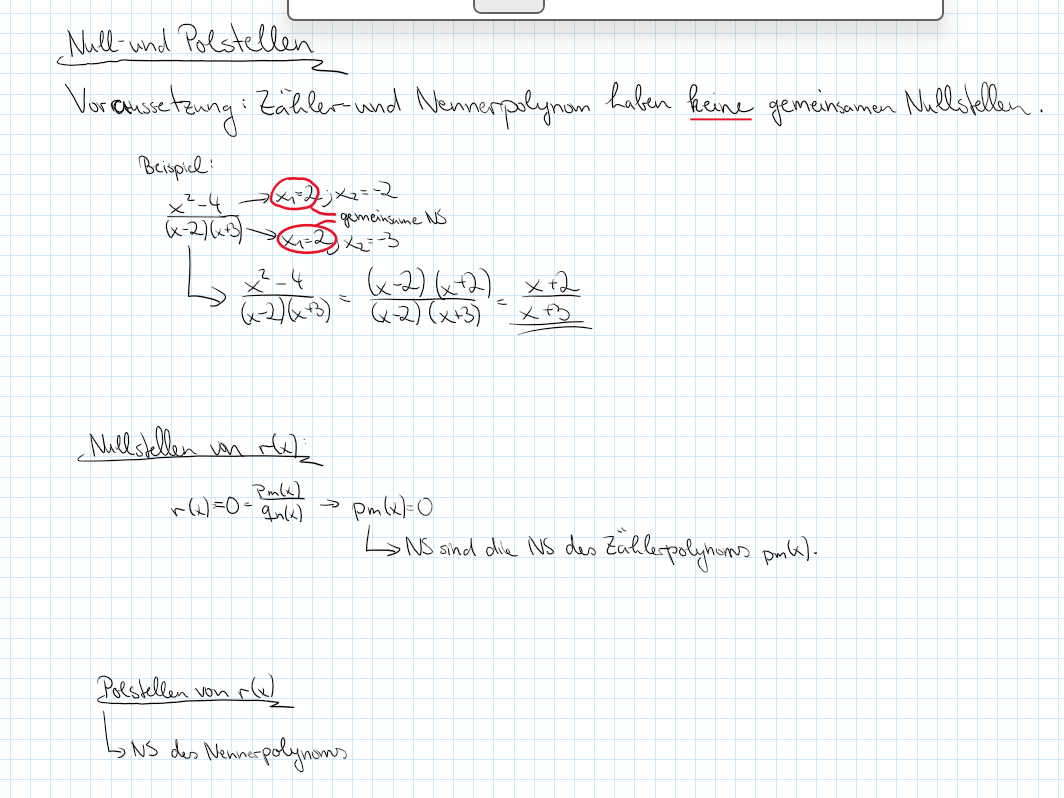 Null- und Polstellen
Voraussetzung: Zähler- und Nennerpolynom haben keine gemeinsamen Nullstellen.
Beispiel:
x²-4 / (x-2)(x+3)
→ x₁=2; x₂=-2
gemeinsame NS
→ x₁=2; x₂=-3
↳ x²-4 / (x-2)(x+3) = (x-2)(x+2) / (x-2)(x+3) = x+2 / x+3
Nullstellen von r(x):
r(x)=0= pm(x) / qn(x) → pm(x)=0
↳ NS sind die NS des Zählerpolynoms pm(x).
Polstellen von r(x)
↳ NS des Nennerpolynoms